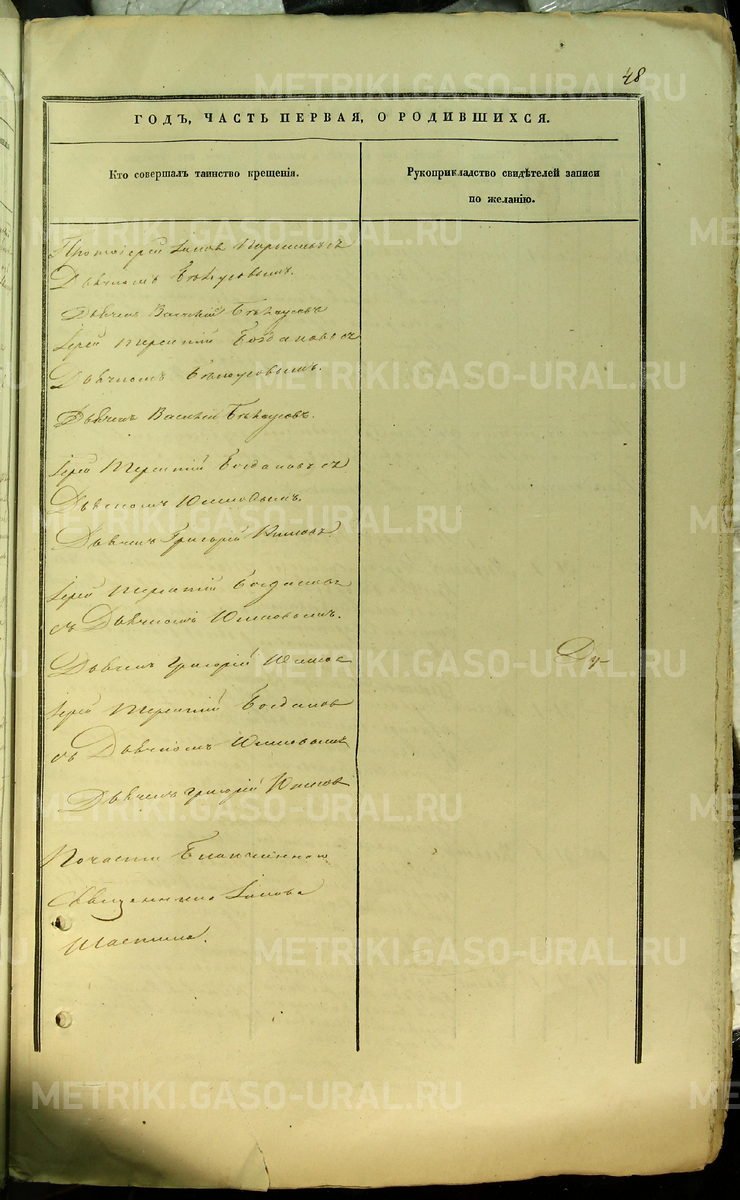 48
ГОДЪ, ЧАСТЬ ПЕРВАЯ, О РОДИВШИХСЯ.
Кто совершалъ таинство крещенія.
Рукоприкладство свидѣтелей записи
по желанію.
Протоіерей Іаковъ съ
Дьячкомъ Бѣлоусовымъ.
Дьячекъ Василій Бѣлоусовъ
Іерей Терентій Богдановъ съ
Дьячкомъ Бѣлоусовымъ.
Дьячекъ Василій Бѣлоусовъ.
Іерей Терентій Богдановъ съ
Дьячкомъ
Дьячекъ Григорій
Іерей Терентій Богдановъ
съ Дьячкомъ
Дьячекъ Григорій
Іерей Терентій Богдановъ
съ Дьячкомъ
Дьячекъ Григорій
По части Благочиннаго
Священника Іакова
METRIKI.GASO-URAL.RU